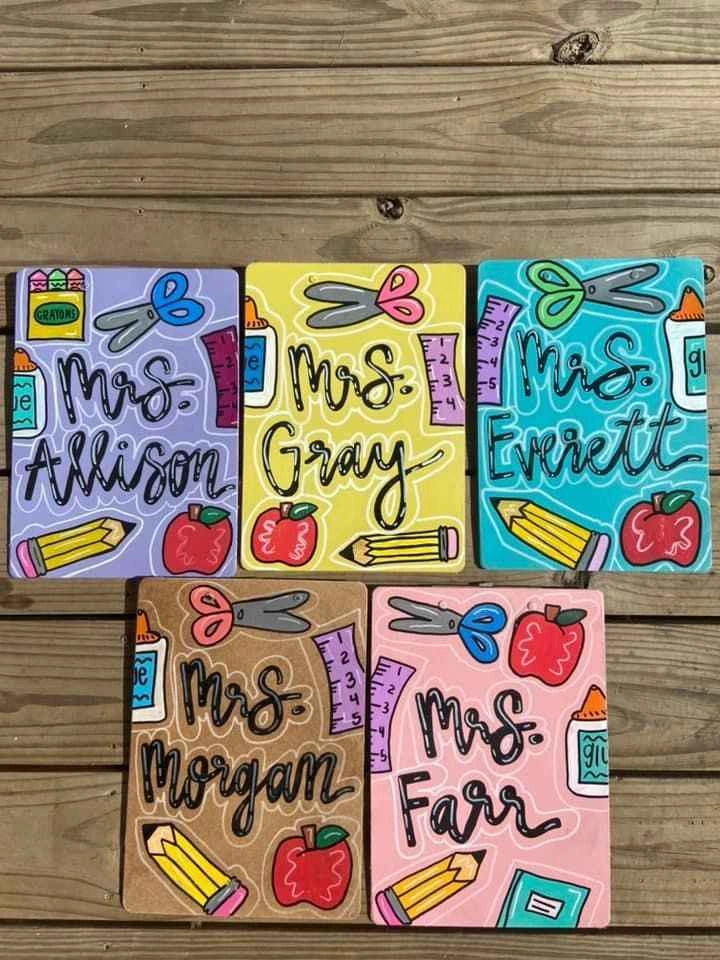 CRAYONS
ue
1
2
3
Mrs.
Allison
e
1
2
3
4
Mrs.
Gray
1
2
3
4
5
gl
Mrs.
Everett
ue
1
2
3
4
5
Mrs.
Morgan
1
2
3
4
5
glu
Mrs.
Farr